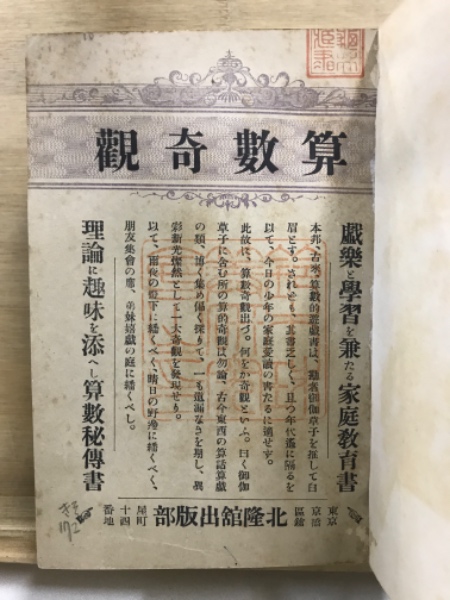 算數奇觀
戲樂と學習を兼たる家庭教育書
本邦、古來、算數的遊戯書は、勘者御伽草子を推して白
眉とす。されども、其書乏しく、且つ年代遙に隔るを
以て、今日の少年の家庭愛讀の書たるに適せず。
此故に、算數奇觀出づ。何をか奇觀といふ。曰く御伽
草子に含む所の算的奇觀は勿論、古今東西の算話算戯
の類、博く集め偏く探りて、一も遺漏なきを期し、異
彩新光燦然として一大奇觀を發現せり。
以て、雨夜の燈下に繙くべく、晴日の野邊に繙くべく、
朋友集會の席、弟妹嬉戯の庭に繙くべし。
理論に趣味を添へし算數秘傳書
東京
京橋
區
北隆舘出版部
屋町
十四
番地